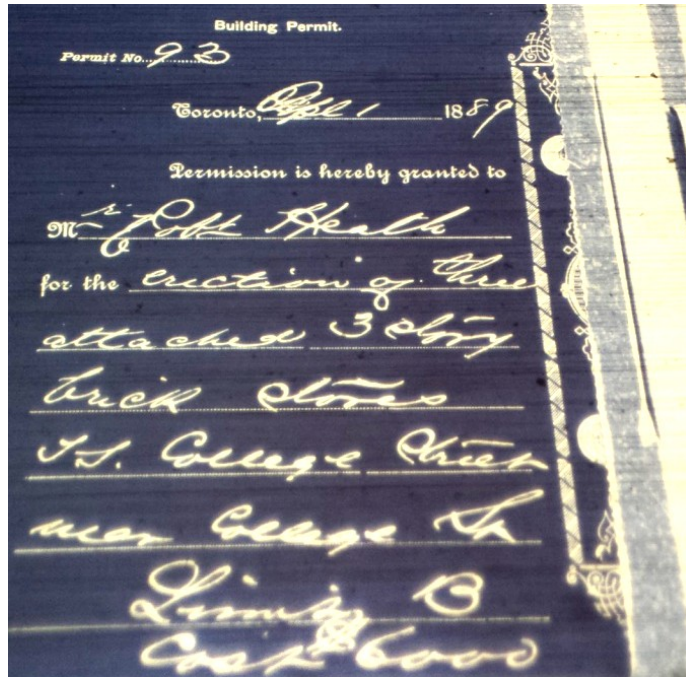 Building Permit.
Permit No. 93
Toronto, Sept 1 1889
Permission is hereby granted to
Mr Robt Heath
for the erection of three
attached 3 story
brick stores
College Street
near College
Limit B
Cost 6000